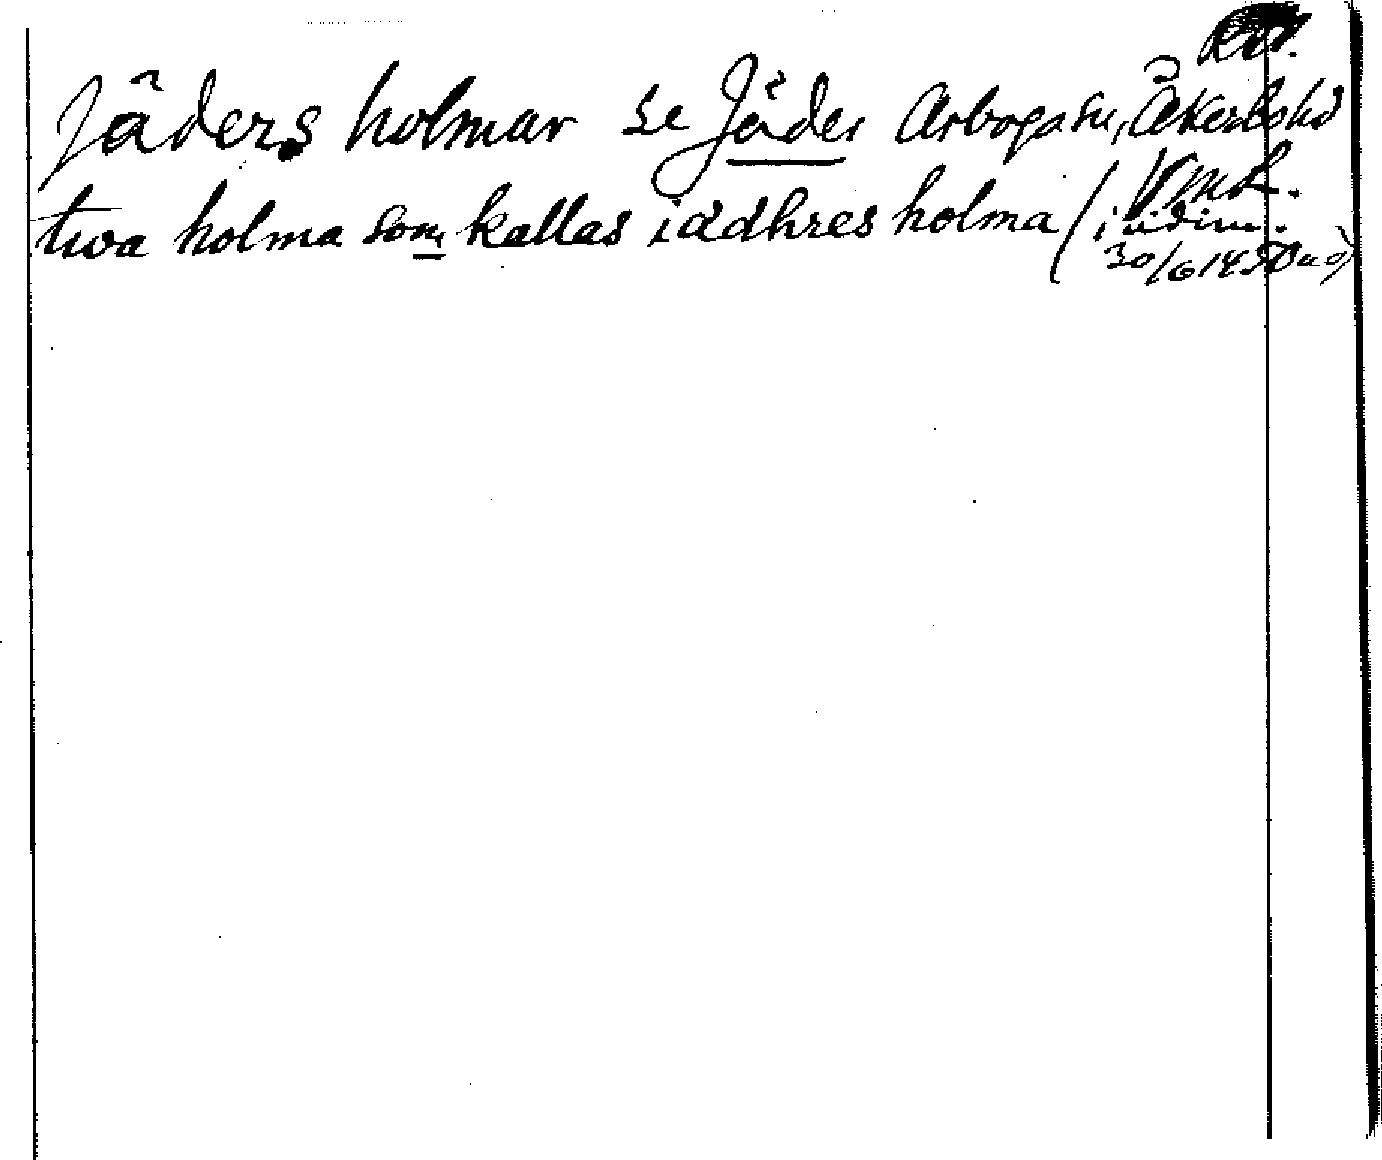 Jäders holmar se Jäder Arboga sn, Åkerbo hd
VmL.
twa holma som kallas iädhres holma (i
30/6 1450